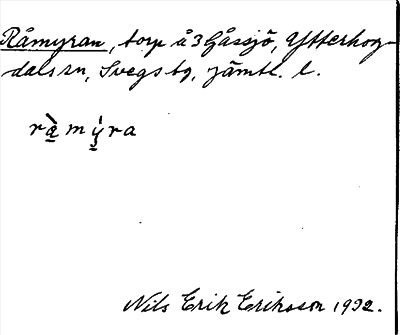 Råmyran, torp å 3 Gåssjö, Ytterhog-
dals sn, Svegs tg, Jämtl. l.
rà̱mý̱ra
Nils Erik Eriksson 1932.